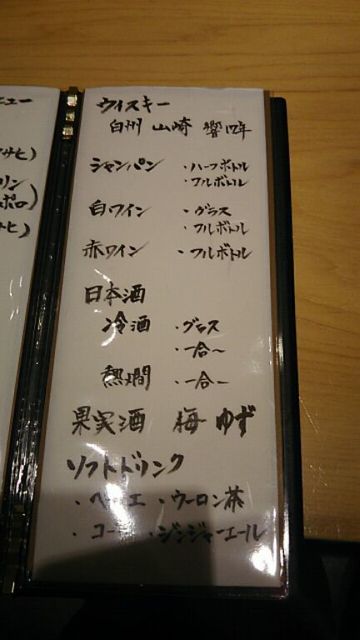 ニュー
サヒ)
リン
ポロ)
サヒ)
ウイスキー
白州 山崎 響12年
シャンパン ・ハーフボトル
・フルボトル
白ワイン ・グラス
・フルボトル
赤ワイン ・フルボトル
日本酒
冷酒 ・グラス
・一合〜
熱燗 ・一合〜
果実酒 梅 ゆず
ソフトドリンク
・ウーロン茶
・コーラ ・ジンジャーエール